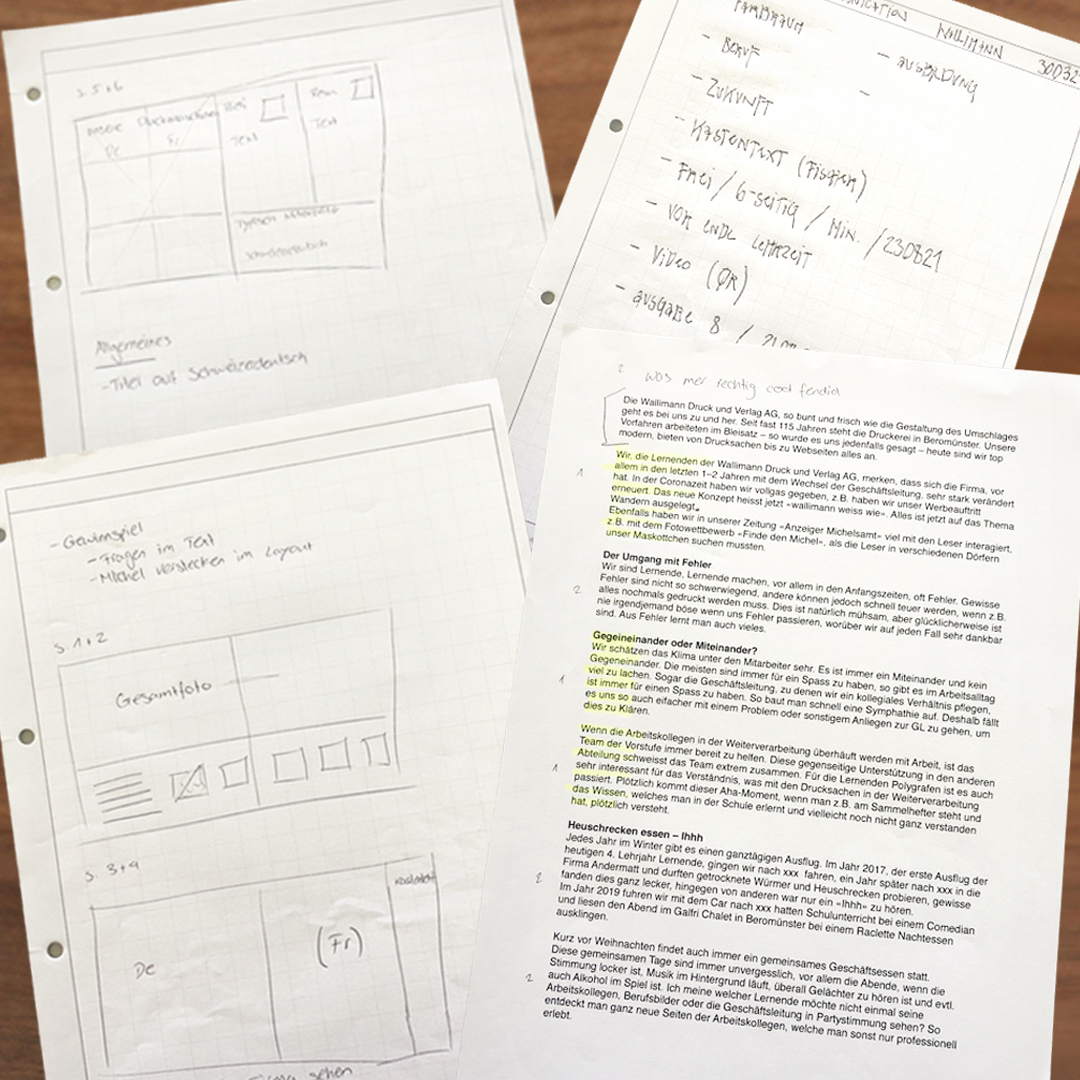 S. 5+6
unsere Druckmaschinen
De Fr
Text
Text
Text
Allgemeines
- Titel auf Schweizerdeutsch
WALLIMANN
- BERUF
- AUSBILDUNG
-
- ZUKUNFT
- KASTENTEXT (FISCHER)
- FREI / 6-SEITIG / MIN. / 230821
- VOR ENDE LEHRZEIT
- VIDEO (QR)
- AUSGABE 8 /
- Gewinnspiel
- Fragen im Text
- Michel verstecken im Layout
S. 1+2
Gesamtfoto
S. 3+4
De
(Fr)
sehen
2 was mer rechtig cool fendid
Die Wallimann Druck und Verlag AG, so bunt und frisch wie die Gestaltung des Umschlages
geht es bei uns zu und her. Seit fast 115 Jahren steht die Druckerei in Beromünster. Unsere
Vorfahren arbeiteten im Bleisatz – so wurde es uns jedenfalls gesagt – heute sind wir top
modern, bieten von Drucksachen bis zu Webseiten alles an.
1
Wir, die Lernenden der Wallimann Druck und Verlag AG, merken, dass sich die Firma, vor
allem in den letzten 1–2 Jahren mit dem Wechsel der Geschäftsleitung, sehr stark verändert
hat. In der Coronazeit haben wir vollgas gegeben, z.B. haben wir unser Werbeauftritt
erneuert. Das neue Konzept heisst jetzt «wallimann weiss wie». Alles ist jetzt auf das Thema
Wandern ausgelegt.
Ebenfalls haben wir in unserer Zeitung «Anzeiger Michelsamt» viel mit den Leser interagiert,
z.B. mit dem Fotowettbewerb «Finde den Michel», als die Leser in verschiedenen Dörfern
unser Maskottchen suchen mussten.
Der Umgang mit Fehler
Wir sind Lernende, Lernende machen, vor allem in den Anfangszeiten, oft Fehler. Gewisse
Fehler sind nicht so schwerwiegend, andere können jedoch schnell teuer werden, wenn z.B.
2 alles nochmals gedruckt werden muss. Dies ist natürlich mühsam, aber glücklicherweise ist
nie irgendjemand böse wenn uns Fehler passieren, worüber wir auf jeden Fall sehr dankbar
sind. Aus Fehler lernt man auch vieles.
Gegeineinander oder Miteinander?
Wir schätzen das Klima unter den Mitarbeiter sehr. Es ist immer ein Miteinander und kein
Gegeneinander. Die meisten sind immer für ein Spass zu haben, so gibt es im Arbeitsalltag
viel zu lachen. Sogar die Geschäftsleitung, zu denen wir ein kollegiales Verhältnis pflegen,
1 ist immer für einen Spass zu haben. So baut man schnell eine Symphathie auf. Deshalb fällt
es uns so auch eifacher mit einem Problem oder sonstigem Anliegen zur GL zu gehen, um
dies zu Klären.
Wenn die Arbeitskollegen in der Weiterverarbeitung überhäuft werden mit Arbeit, ist das
Team der Vorstufe immer bereit zu helfen. Diese gegenseitige Unterstützung in den anderen
Abteilung schweisst das Team extrem zusammen. Für die Lernenden Polygrafen ist es auch
1 sehr interessant für das Verständnis, was mit den Drucksachen in der Weiterverarbeitung
passiert. Plötzlich kommt dieser Aha-Moment, wenn man z.B. am Sammelhefter steht und
das Wissen, welches man in der Schule erlernt und vielleicht noch nicht ganz verstanden
hat, plötzlich versteht.
Heuschrecken essen – Ihhh
Jedes Jahr im Winter gibt es einen ganztägigen Ausflug. Im Jahr 2017, der erste Ausflug der
heutigen 4. Lehrjahr Lernende, gingen wir nach xxx fahren, ein Jahr später nach xxx in die
Firma Andermatt und durften getrocknete Würmer und Heuschrecken probieren, gewisse
2 fanden dies ganz lecker, hingegen von anderen war nur ein «Ihhh» zu hören.
Im Jahr 2019 fuhren wir mit dem Car nach xxx hatten Schulunterricht bei einem Comedian
und liesen den Abend im Galfri Chalet in Beromünster bei einem Raclette Nachtessen
ausklingen.
Kurz vor Weihnachten findet auch immer ein gemeinsames Geschäftsessen statt.
Diese gemeinsamen Tage sind immer unvergesslich, vor allem die Abende, wenn die
Stimmung locker ist, Musik im Hintergrund läuft, überall Gelächter zu hören ist und evtl.
2 auch Alkohol im Spiel ist. Ich meine welcher Lernende möchte nicht einmal seine
Arbeitskollegen, Berufsbilder oder die Geschäftsleitung in Partystimmung sehen? So
entdeckt man ganz neue Seiten der Arbeitskollegen, welche man sonst nur professionell
erlebt.